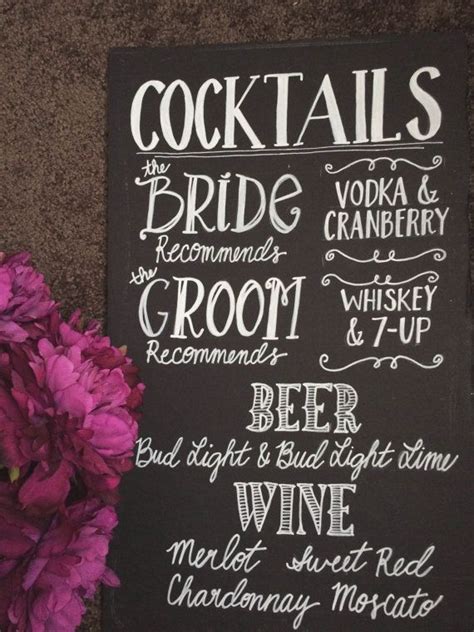 COCKTAILS
the
BRIDE
Recommends
VODKA &
CRANBERRY
the
GROOM
Recommends
WHISKEY
& 7-UP
BEER
Bud Light & Bud Light Lime
WINE
Merlot Sweet Red
Chardonnay Moscato